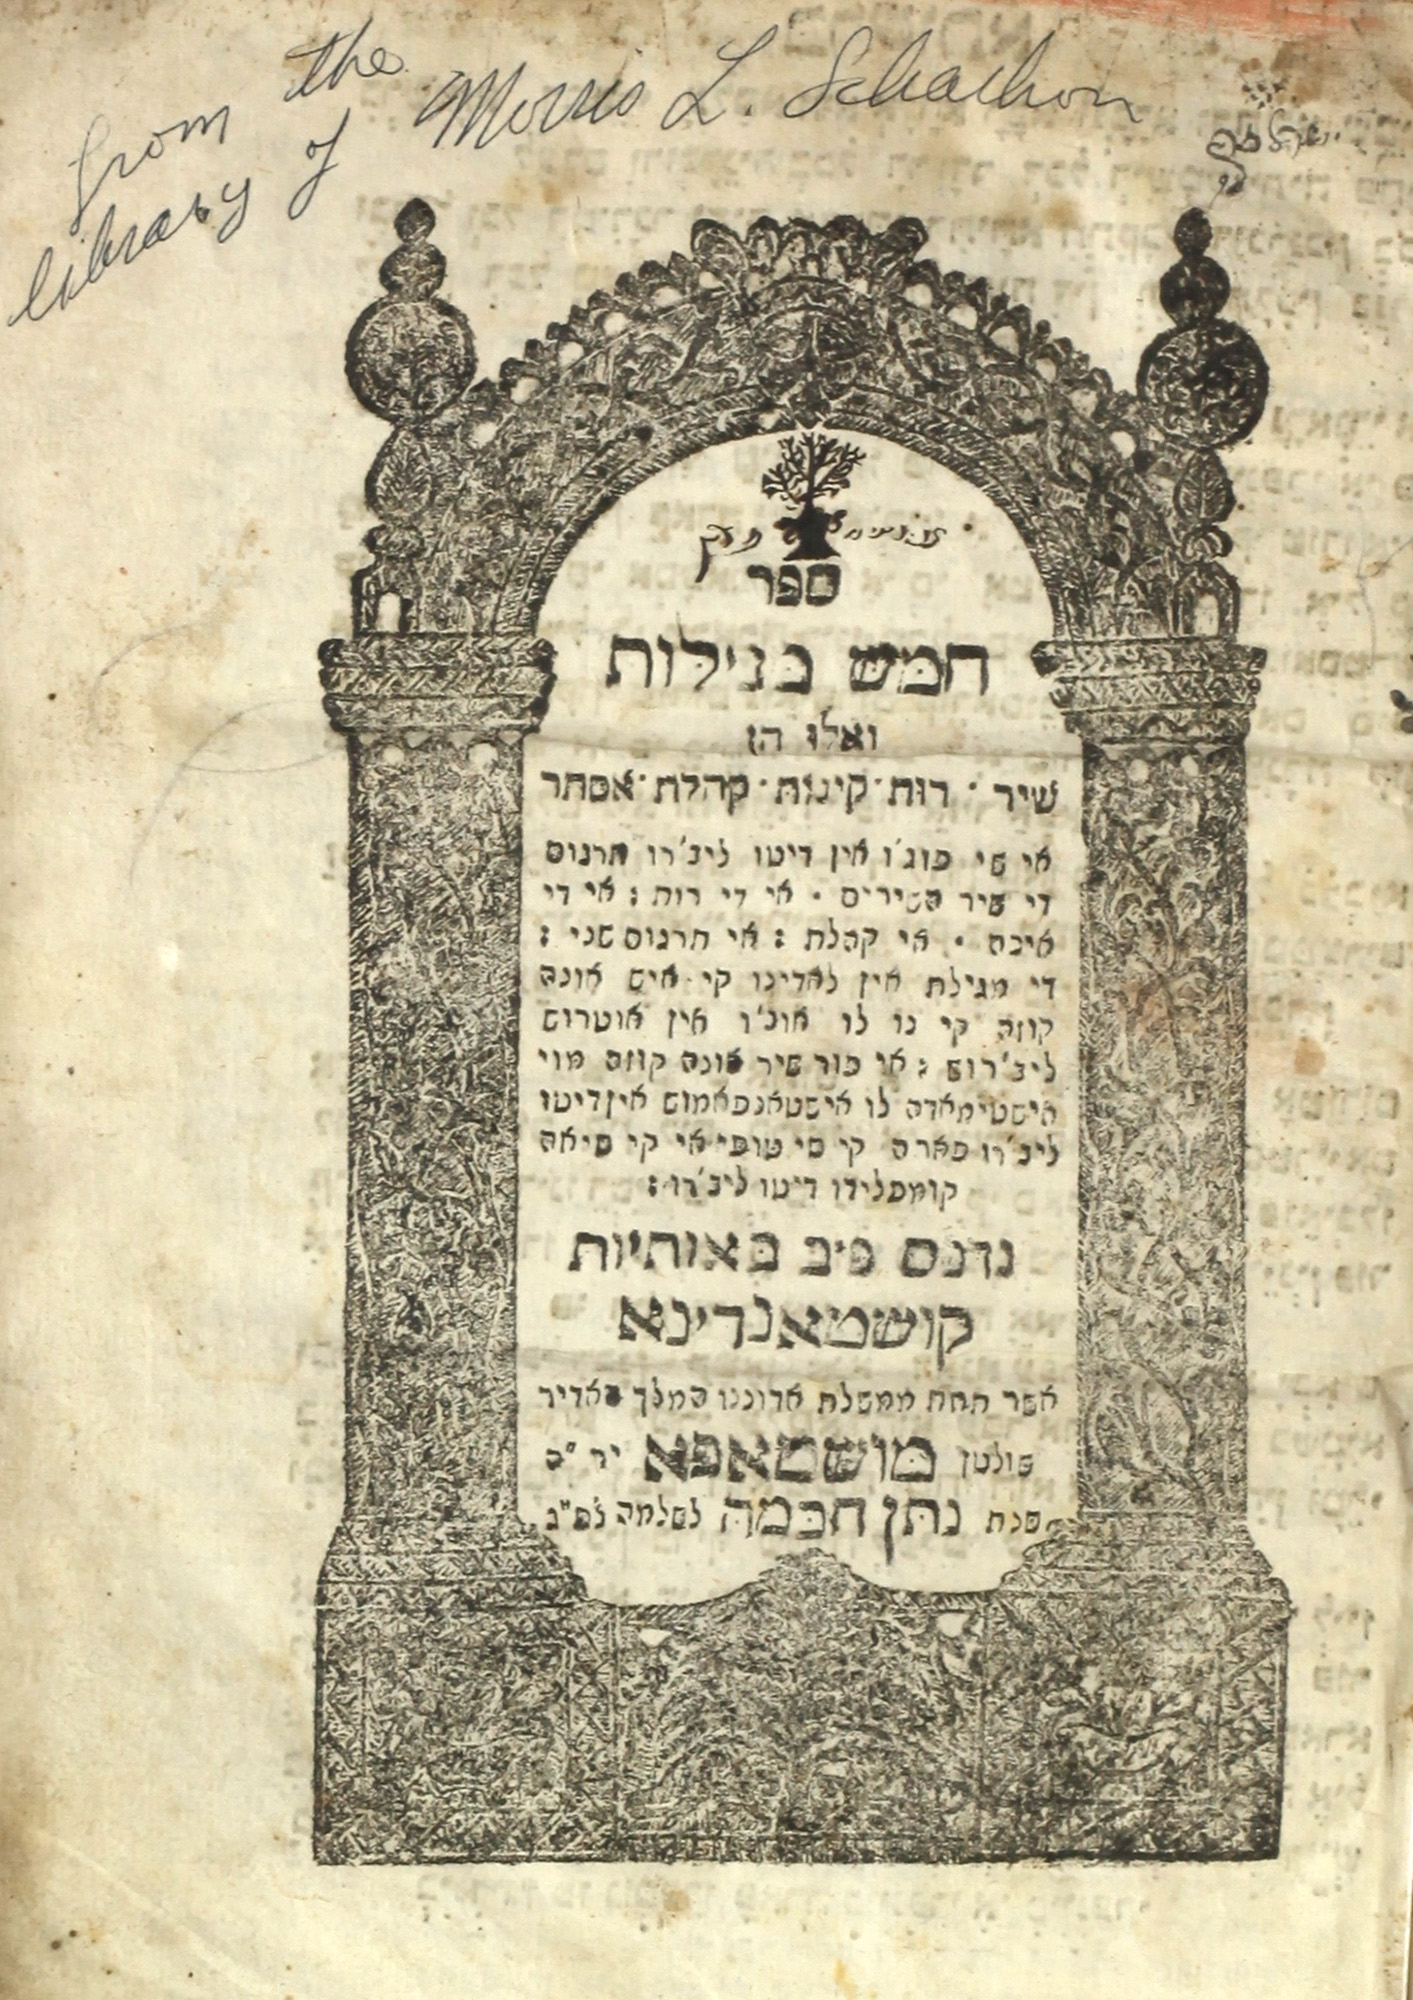 from the
library of Morris L. Schachon
ספר
חמש מגילות
ואלו הן
שיר · רות · קינות · קהלת · אסתר
אי שי פוג'ו אין דיטו ליב'רו תרגום
די שיר השירים · אי די רות : אי די
איכה · אי קהלת : אי תרגום שני :
די מגילת אין לאדינו קי איש אונה
קוזה קי נו לו אוב'ו אין אוטרוס
ליב'רוש : אי פור שיר אונה קוזה מוי
אישטימאדה לו אישטאנפאמוש אין דיטו
ליב'רו פארה קי סי טופי אי קי סיאה
קומפלידו דיטו ליב'רו :
נדפס פיב באותיות
קושטאנדינא
אשר תחת ממשלת אדוננו המלך האדיר
שולטן מושטאפא יר"ה
שנת נתן חכמה לשלמה לפ"ג